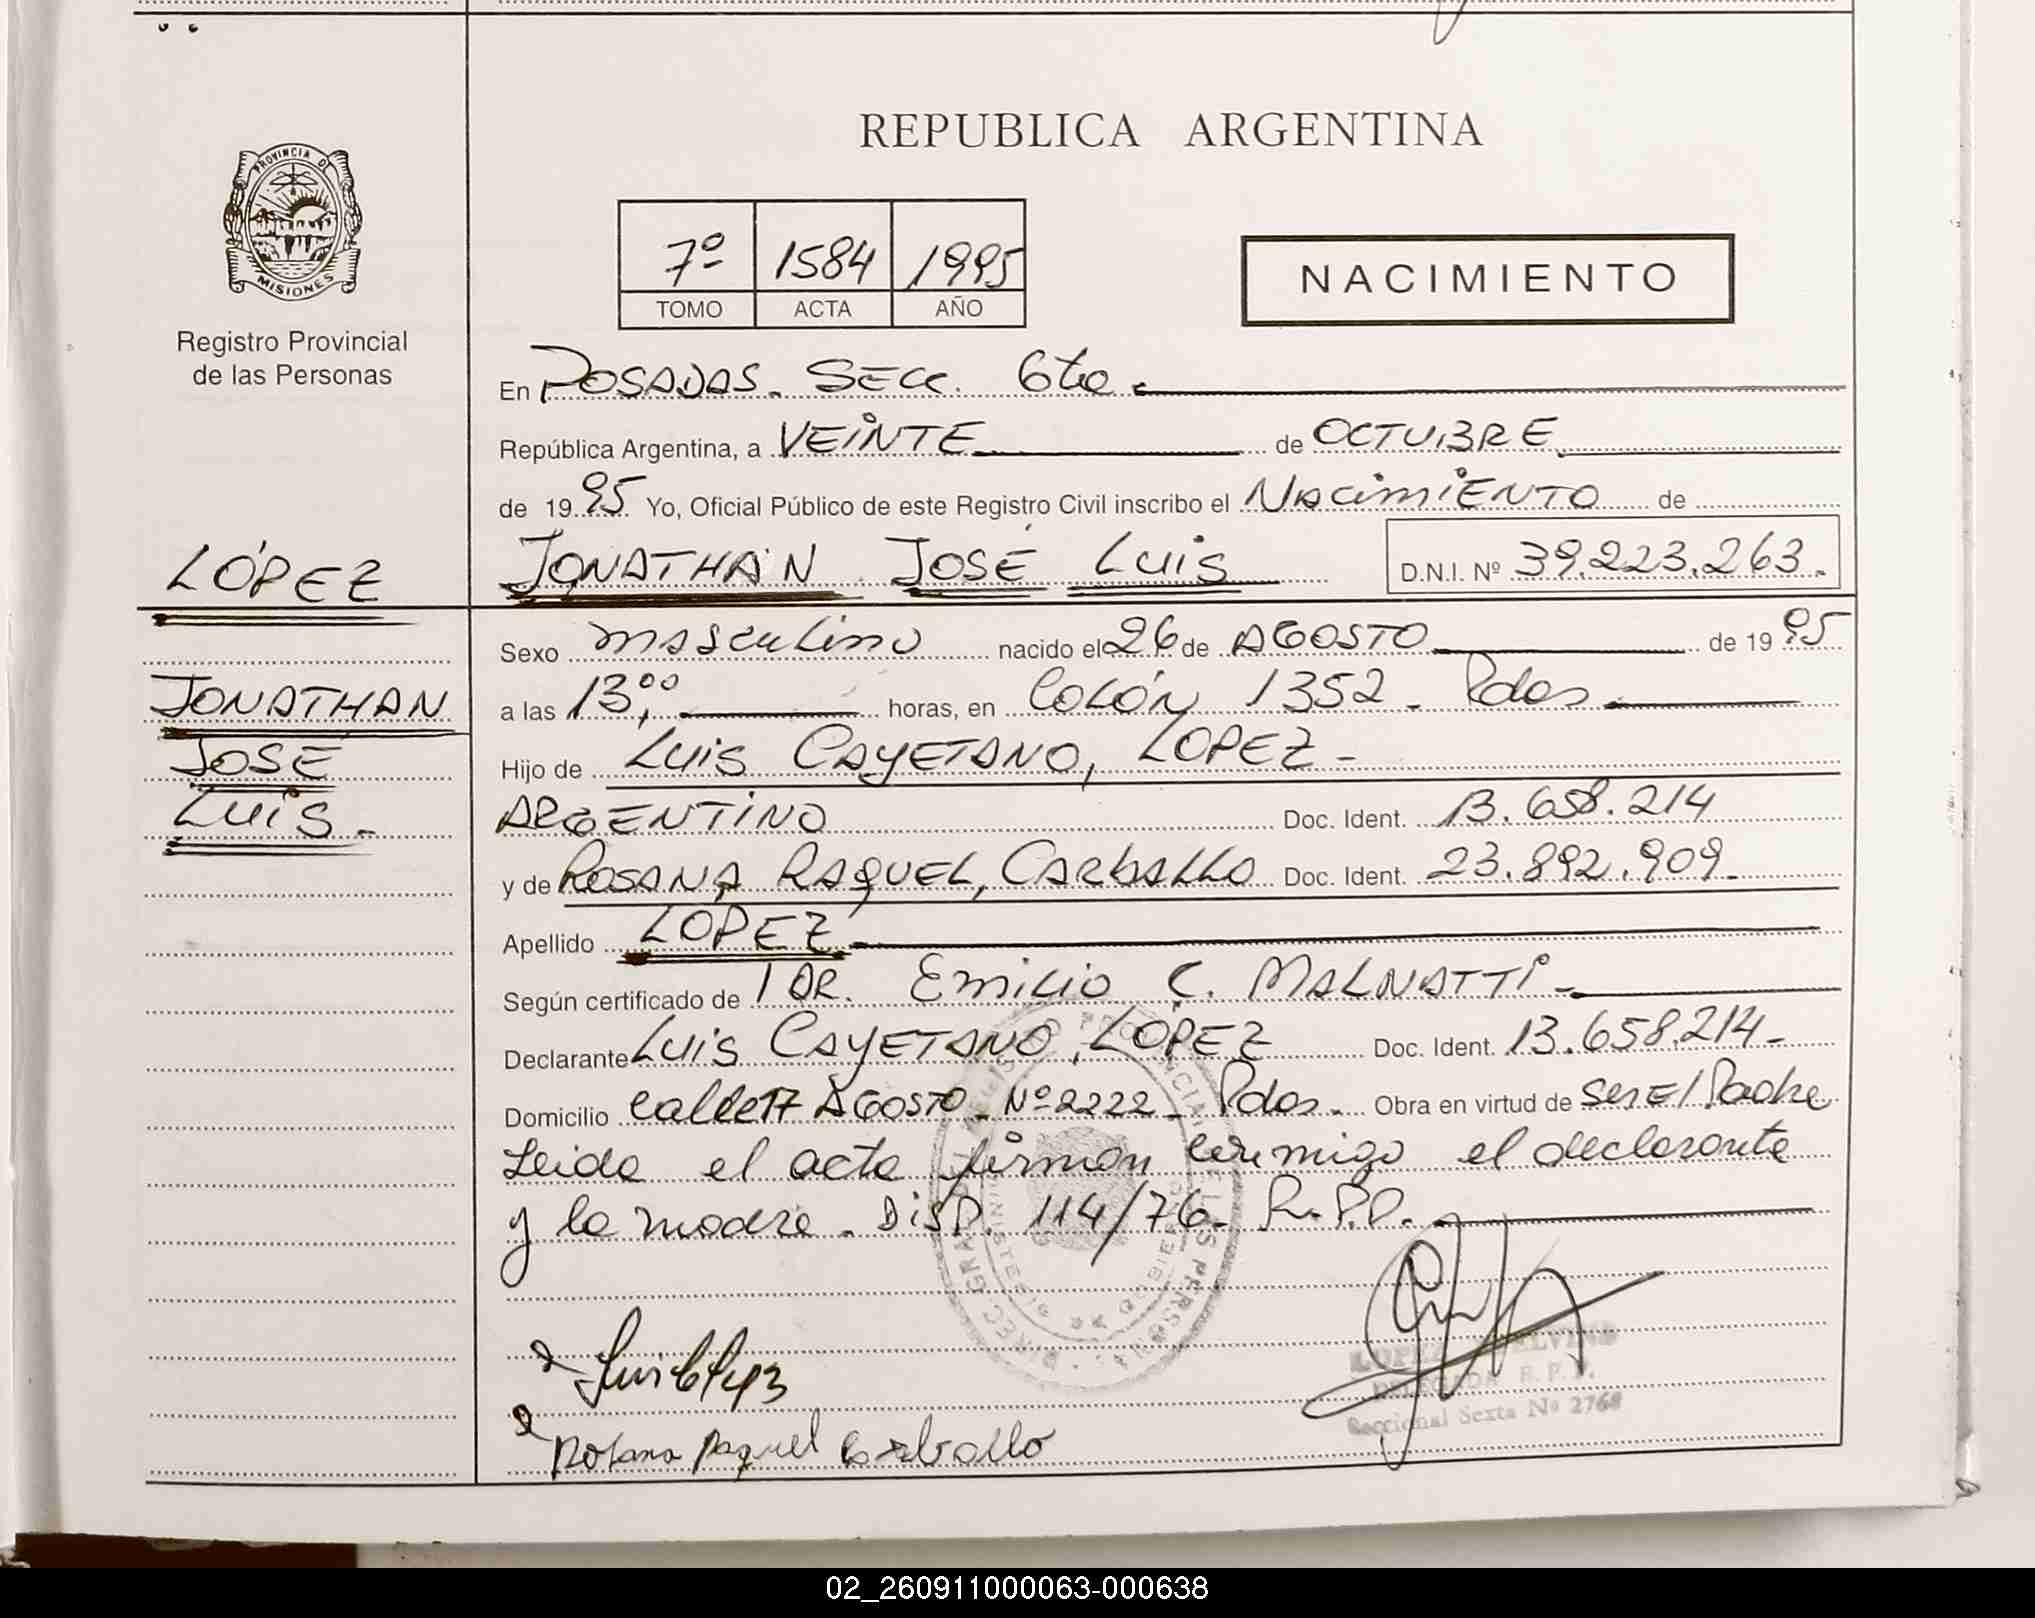 REPUBLICA ARGENTINA
PROVINCIA DE
MISIONES
Registro Provincial
de las Personas
7º 1584 1995
TOMO ACTA AÑO
NACIMIENTO
En POSADAS. SECC. 6ta.
República Argentina, a VEINTE de OCTUBRE
de 19 95 Yo, Oficial Público de este Registro Civil inscribo el NACIMIENTO de
LÓPEZ
JONATHAN JOSÉ LUIS D.N.I. Nº 39.223.263.
Sexo masculino nacido el 26 de AGOSTO de 19 95
JONATHAN
a las 13,00 horas, en COLÓN 1352 - Pdas
JOSÉ
Hijo de LUIS CAYETANO, LOPEZ -
LUIS -
ARGENTINO Doc. Ident. 13.658.214
y de ROSANA RAQUEL, CARBALLO Doc. Ident. 23.892.909-
Apellido LÓPEZ
Según certificado de DR. EMILIO C. MALNATTI -
Declarante LUIS CAYETANO, LÓPEZ Doc. Ident. 13.658.214-
Domicilio calle 17 AGOSTO - Nº 2222 - Pdas. Obra en virtud de ser El Padre
Leida el acta firman conmigo el declarante
y la madre. DISP. 114/76- R.P.P.
DELEGADA R.P.P.
Seccional Sexta Nº 2768
Rosana Raquel Carballo
02_260911000063-000638